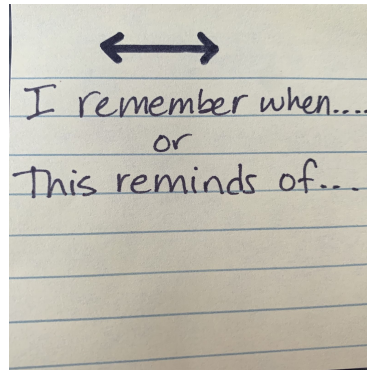 I remember when....
or
This reminds of...